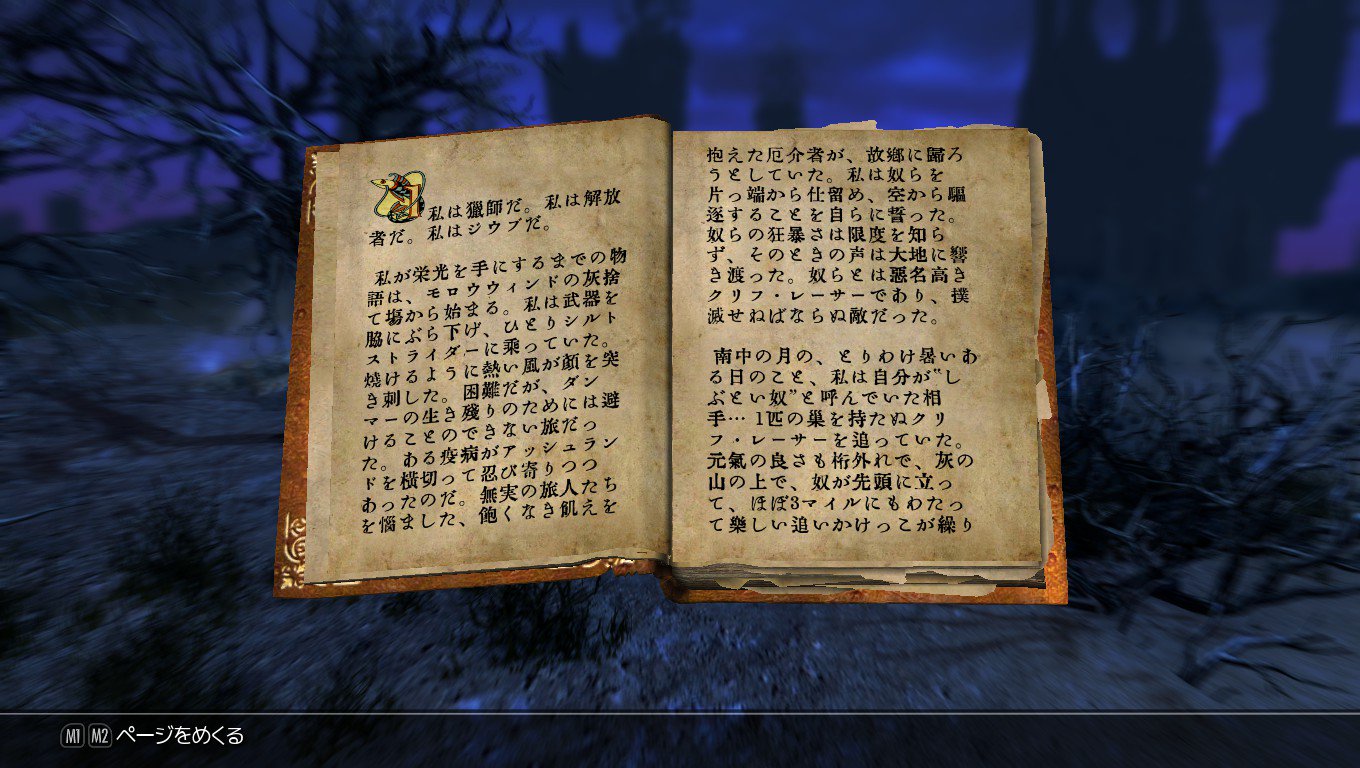 私は獵師だ。私は解放
者だ。私はジウブだ。
私が栄光を手にするまでの物
語は、モロウウィンドの灰捨
て塲から始まる。私は武器を
脇にぶら下げ、ひとりシルト
ストライダーに乗っていた。
燒けるように熱い風が顔を突
き刺した。困難だが、ダン
マーの生き殘りのためには避
けることのできない旅だっ
た。ある疫病がアッシュラン
ドを横切って忍び寄りつつ
あったのだ。無実の旅人たち
を惱ました、飽くなき飢えを
抱えた厄介者が、故鄕に歸ろ
うとしていた。私は奴らを
片っ端から仕留め、空から驅
逐することを自らに誓った。
奴らの狂暴さは限度を知ら
ず、そのときの声は大地に響
き渡った。奴らとは惡名高き
クリフ・レーサーであり、撲
滅せねばならぬ敵だった。
南中の月の、とりわけ暑いあ
る日のこと、私は自分が"し
ぶとい奴"と呼んでいた相
手… 1匹の巣を持たぬクリ
フ・レーサーを追っていた。
元氣の良さも桁外れで、灰の
山の上で、奴が先頭に立っ
て、ほぼ3マイルにもわたっ
て樂しい追いかけっこが繰り
M1 M2 ページをめくる